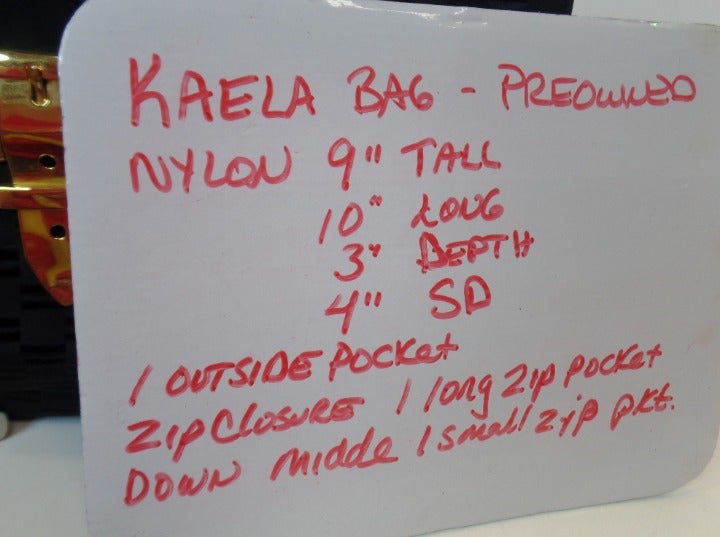 KAELA BAG - PREOWNED
NYLON 9" TALL
10" LONG
3" DEPTH
4" SD
1 OUTSIDE POCKet
ZIP CLOSURE 1 long ZIP POCKet
DOWN midde 1 small zip pkt.